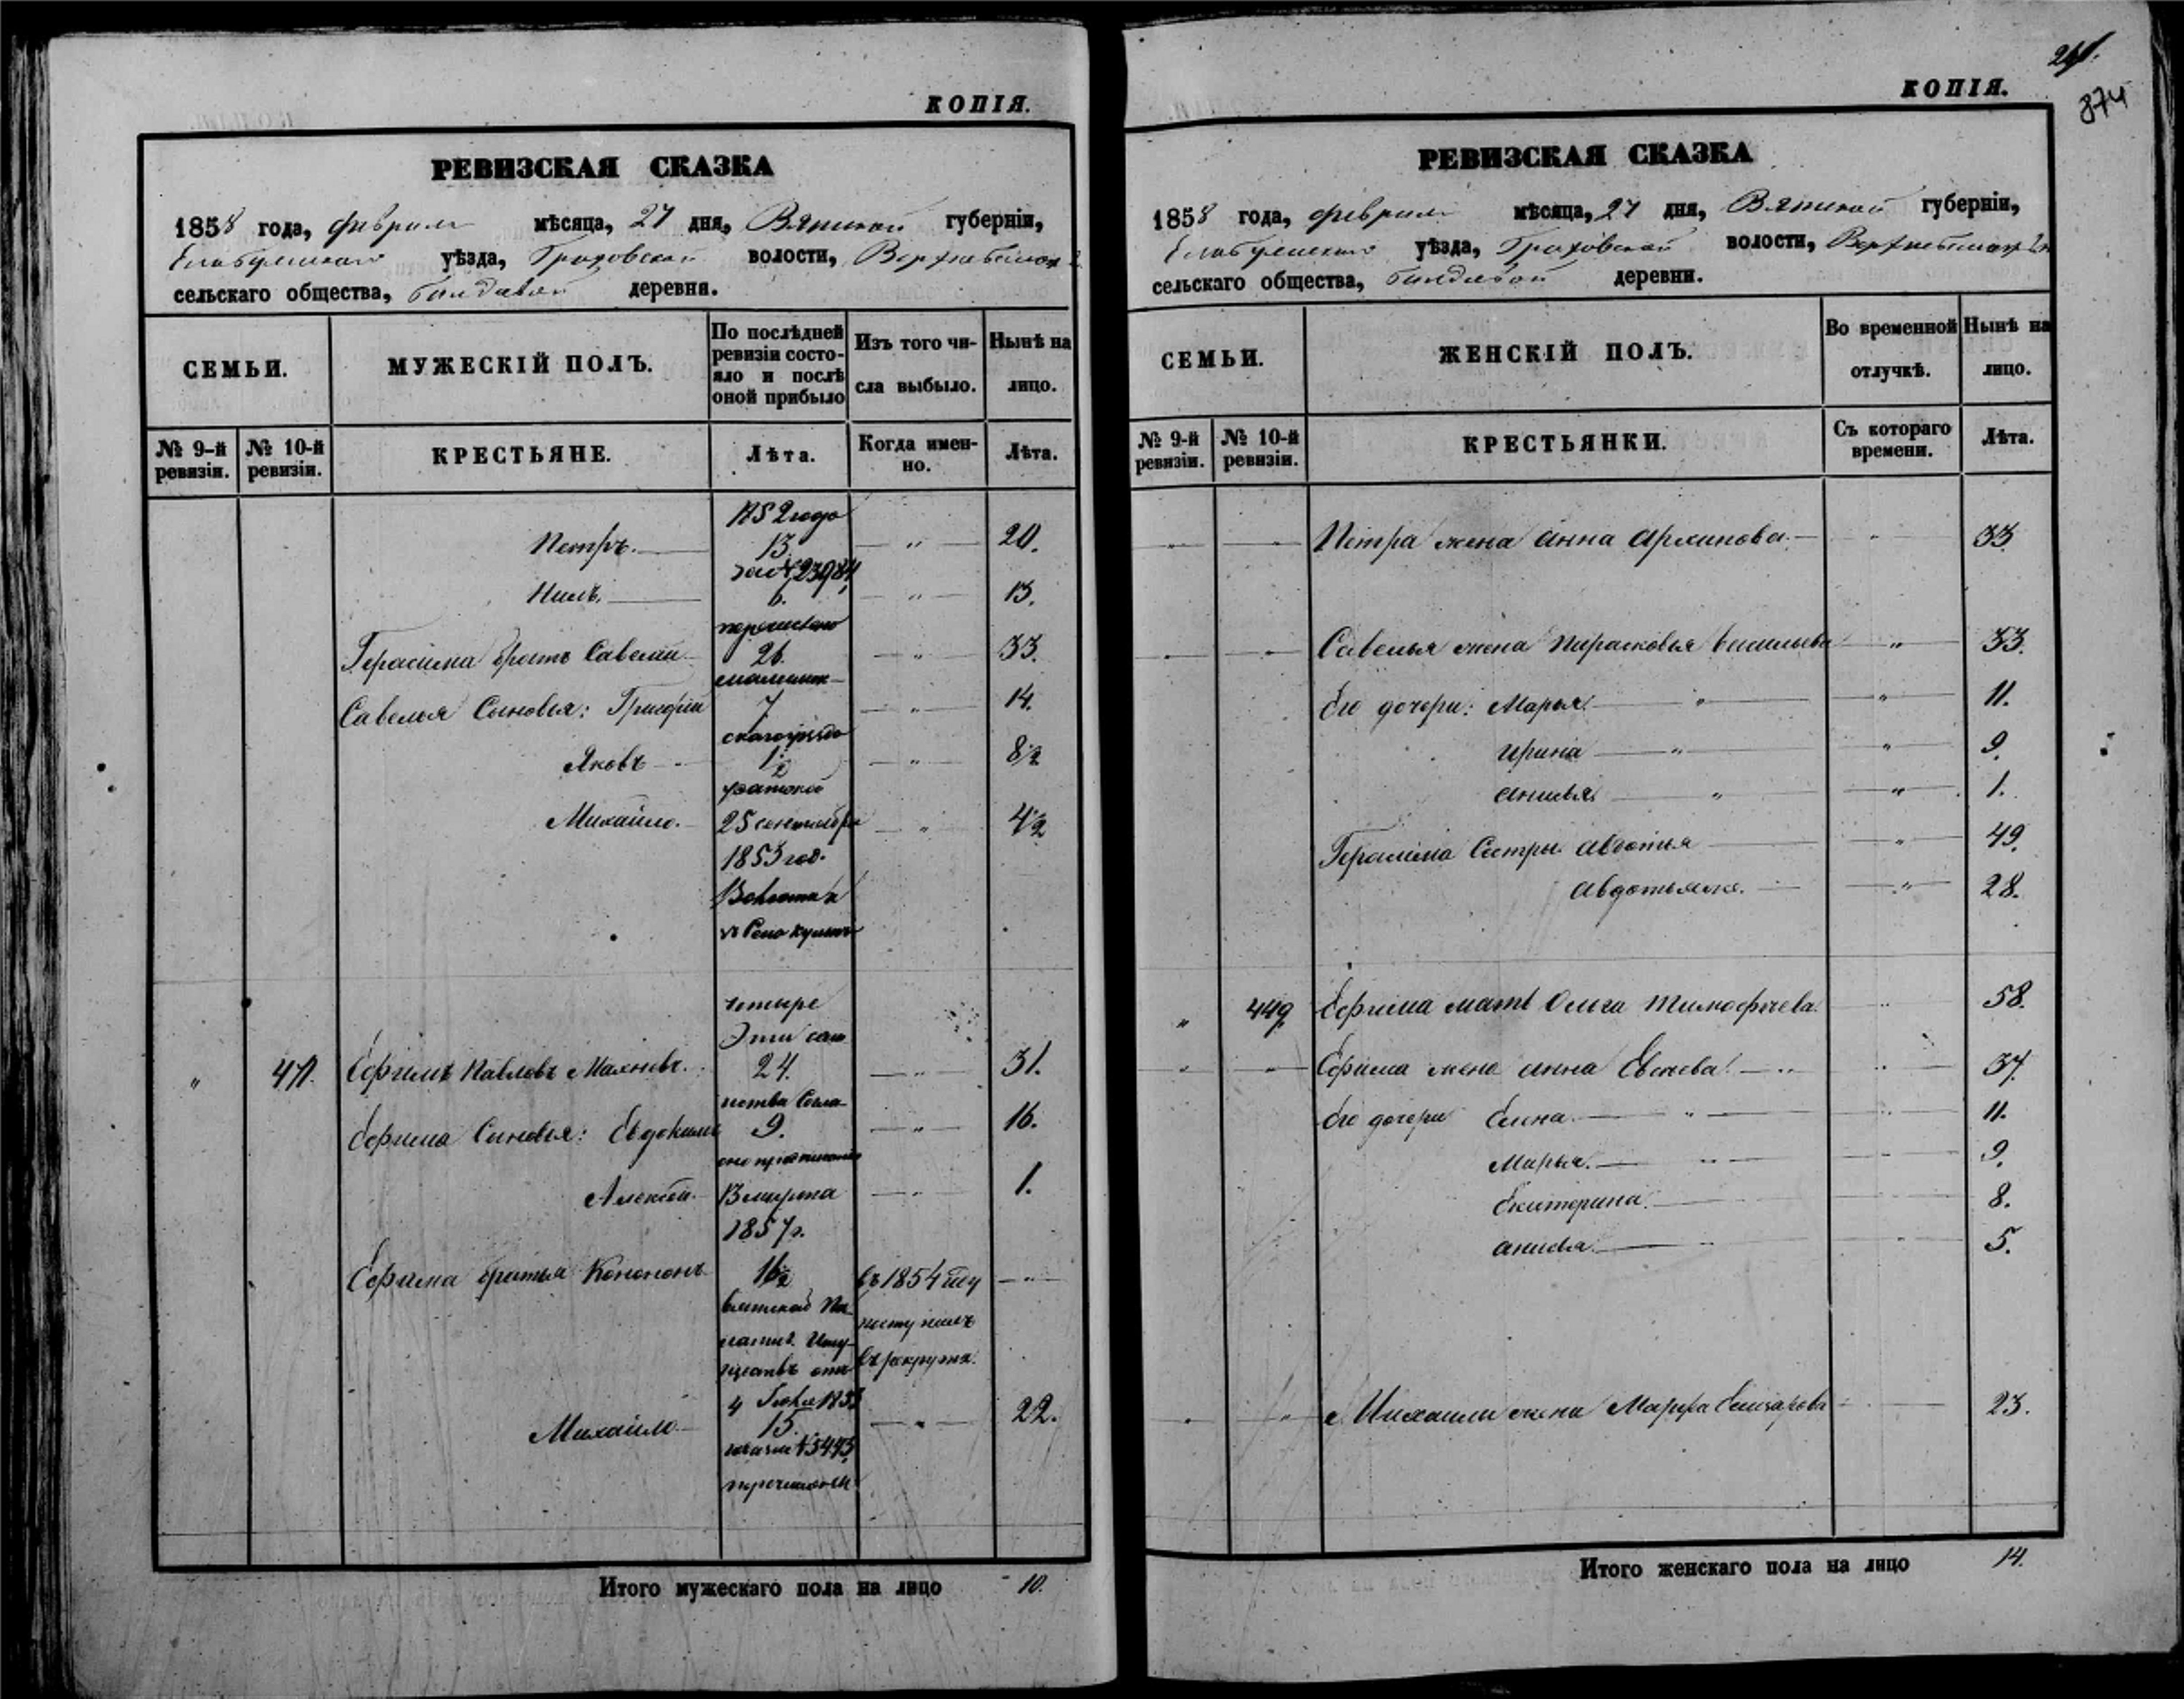 КОПІЯ.
РЕВИЗСКАЯ СКАЗКА
1858 года, февраля мѣсяца, 27 дня, Вятской губерніи,
Елабужскаго уѣзда, Граховской волости,
сельскаго общества, деревни.
СЕМЬИ.
МУЖЕСКІЙ ПОЛЪ.
По послѣдней ревизіи состояло и послѣ оной прибыло
Изъ того числа выбыло.
Нынѣ на лицо.
№ 9-й ревизіи.
№ 10-й ревизіи.
КРЕСТЬЯНЕ.
Лѣта.
Когда именно.
Лѣта.
1852 года
Петръ. 13. 20.
за № 23984
Нилъ. 6. 13.
перечислено
Герасима братъ Савелий 26. 33.
Савелья Сыновья: Григорій 7 14.
Яковъ 1/2 8 1/2
Михайло. 25 сентября 4 1/2
1853 год.
четыре
Эти
Ефимъ Павловъ Махневъ. 24. 31.
Ефима Сыновья: Евдокимъ 9. 16.
Алексѣй. 1.
1857 г.
Ефима братья Кононъ 16 1/2 въ 1854 году
Вятской Па-
поступилъ
латы г. Иму-
ществъ отъ въ рекруты.
4
Михайло 15. 22.
за № 5493
перечислены
Итого мужескаго пола на лицо 10.
КОПІЯ.
241.
874
РЕВИЗСКАЯ СКАЗКА
1858 года, февраля мѣсяца, 27 дня, Вятской губерніи,
Елабужскаго уѣзда, Граховской волости,
сельскаго общества, деревни.
СЕМЬИ.
ЖЕНСКІЙ ПОЛЪ.
Во временной отлучкѣ.
Нынѣ на лицо.
№ 9-й ревизіи.
№ 10-й ревизіи.
КРЕСТЬЯНКИ.
Съ котораго времени.
Лѣта.
Петра жена Анна Архипова. 33
Савелья жена Парасковья Васильева 33.
Его дочери: Марья 11.
Ирина 9.
Анисья 1.
Герасима Сестры Авдотья 49.
Авдотья же. 28.
449 Ефима мать Ольга Тимофѣева. 58.
Ефима жена Анна 37.
Его дочери Елена 11.
Марья. 9.
Екатерина. 8.
Анисья. 5.
Михайлы жена Марфа Елизарова 23.
Итого женскаго пола на лицо 14.